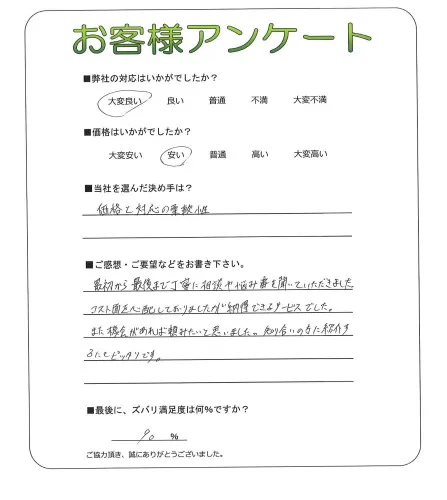 お客様アンケート
■弊社の対応はいかがでしたか?
大変良い 良い 普通 不満 大変不満
■価格はいかがでしたか?
大変安い 安い 普通 高い 大変高い
■当社を選んだ決め手は?
価格と対応の柔軟性
■ご感想・ご要望などをお書き下さい。
最初から最後まで丁寧に相談や悩み事を聞いていただきました
コスト面を心配しておりましたが納得できるサービスでした。
また機会があれば頼みたいと思いました。知り合いの方に紹介す
るにもピッタリです。
■最後に、ズバリ満足度は何%ですか?
90 %
ご協力頂き、誠にありがとうございました。